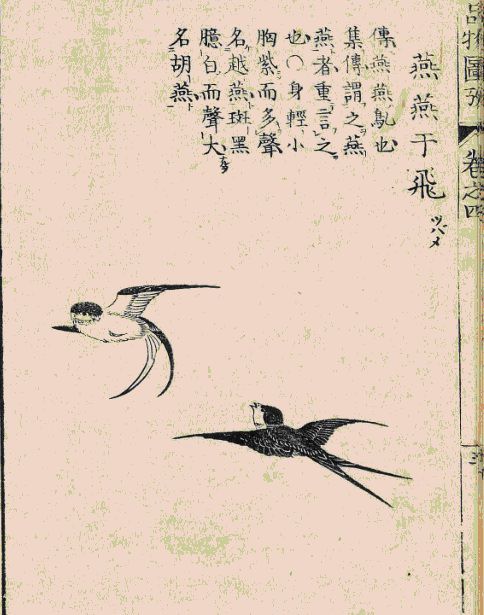 品物圖攷 卷之四
燕燕于飛 ツバメ
傳燕燕鳦也
集傳謂之燕
燕者重言之
也○身輕小
胸紫而多聲
名越燕斑黑
臆白而聲大
名胡燕